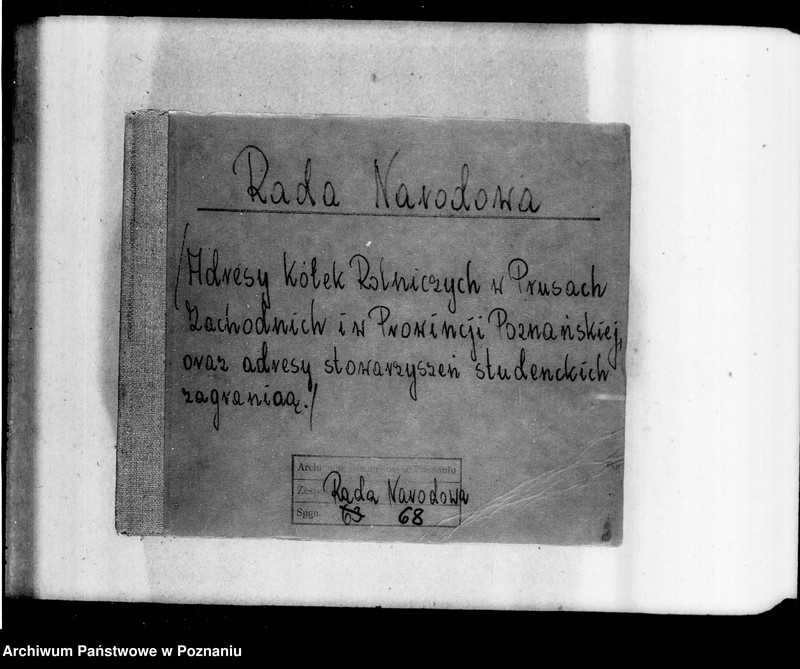 Rada Narodowa
/Adresy Kółek Rolniczych w Prusach
Zachodnich i w Prowincji Poznańskiej,
oraz adresy stowarzyszeń studenckich
zagranicą./
Poznaniu
Rada Narodowa
Sygn. 63 68
Archiwum Państwowe w Poznaniu